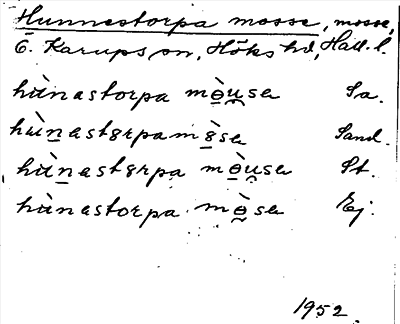 Hunnestorpa mosse, mosse,
Ö. Karups sn, Höks hd, Hall. l.
hùnastorpa mò̲u̯sa Sa.
hùn̲astɤrpa mɤ̲̀sa Sand.
hùn̲astɤrpa mò̲u̯sa St.
hùnastorpa mò̲sa Ej.
1952.